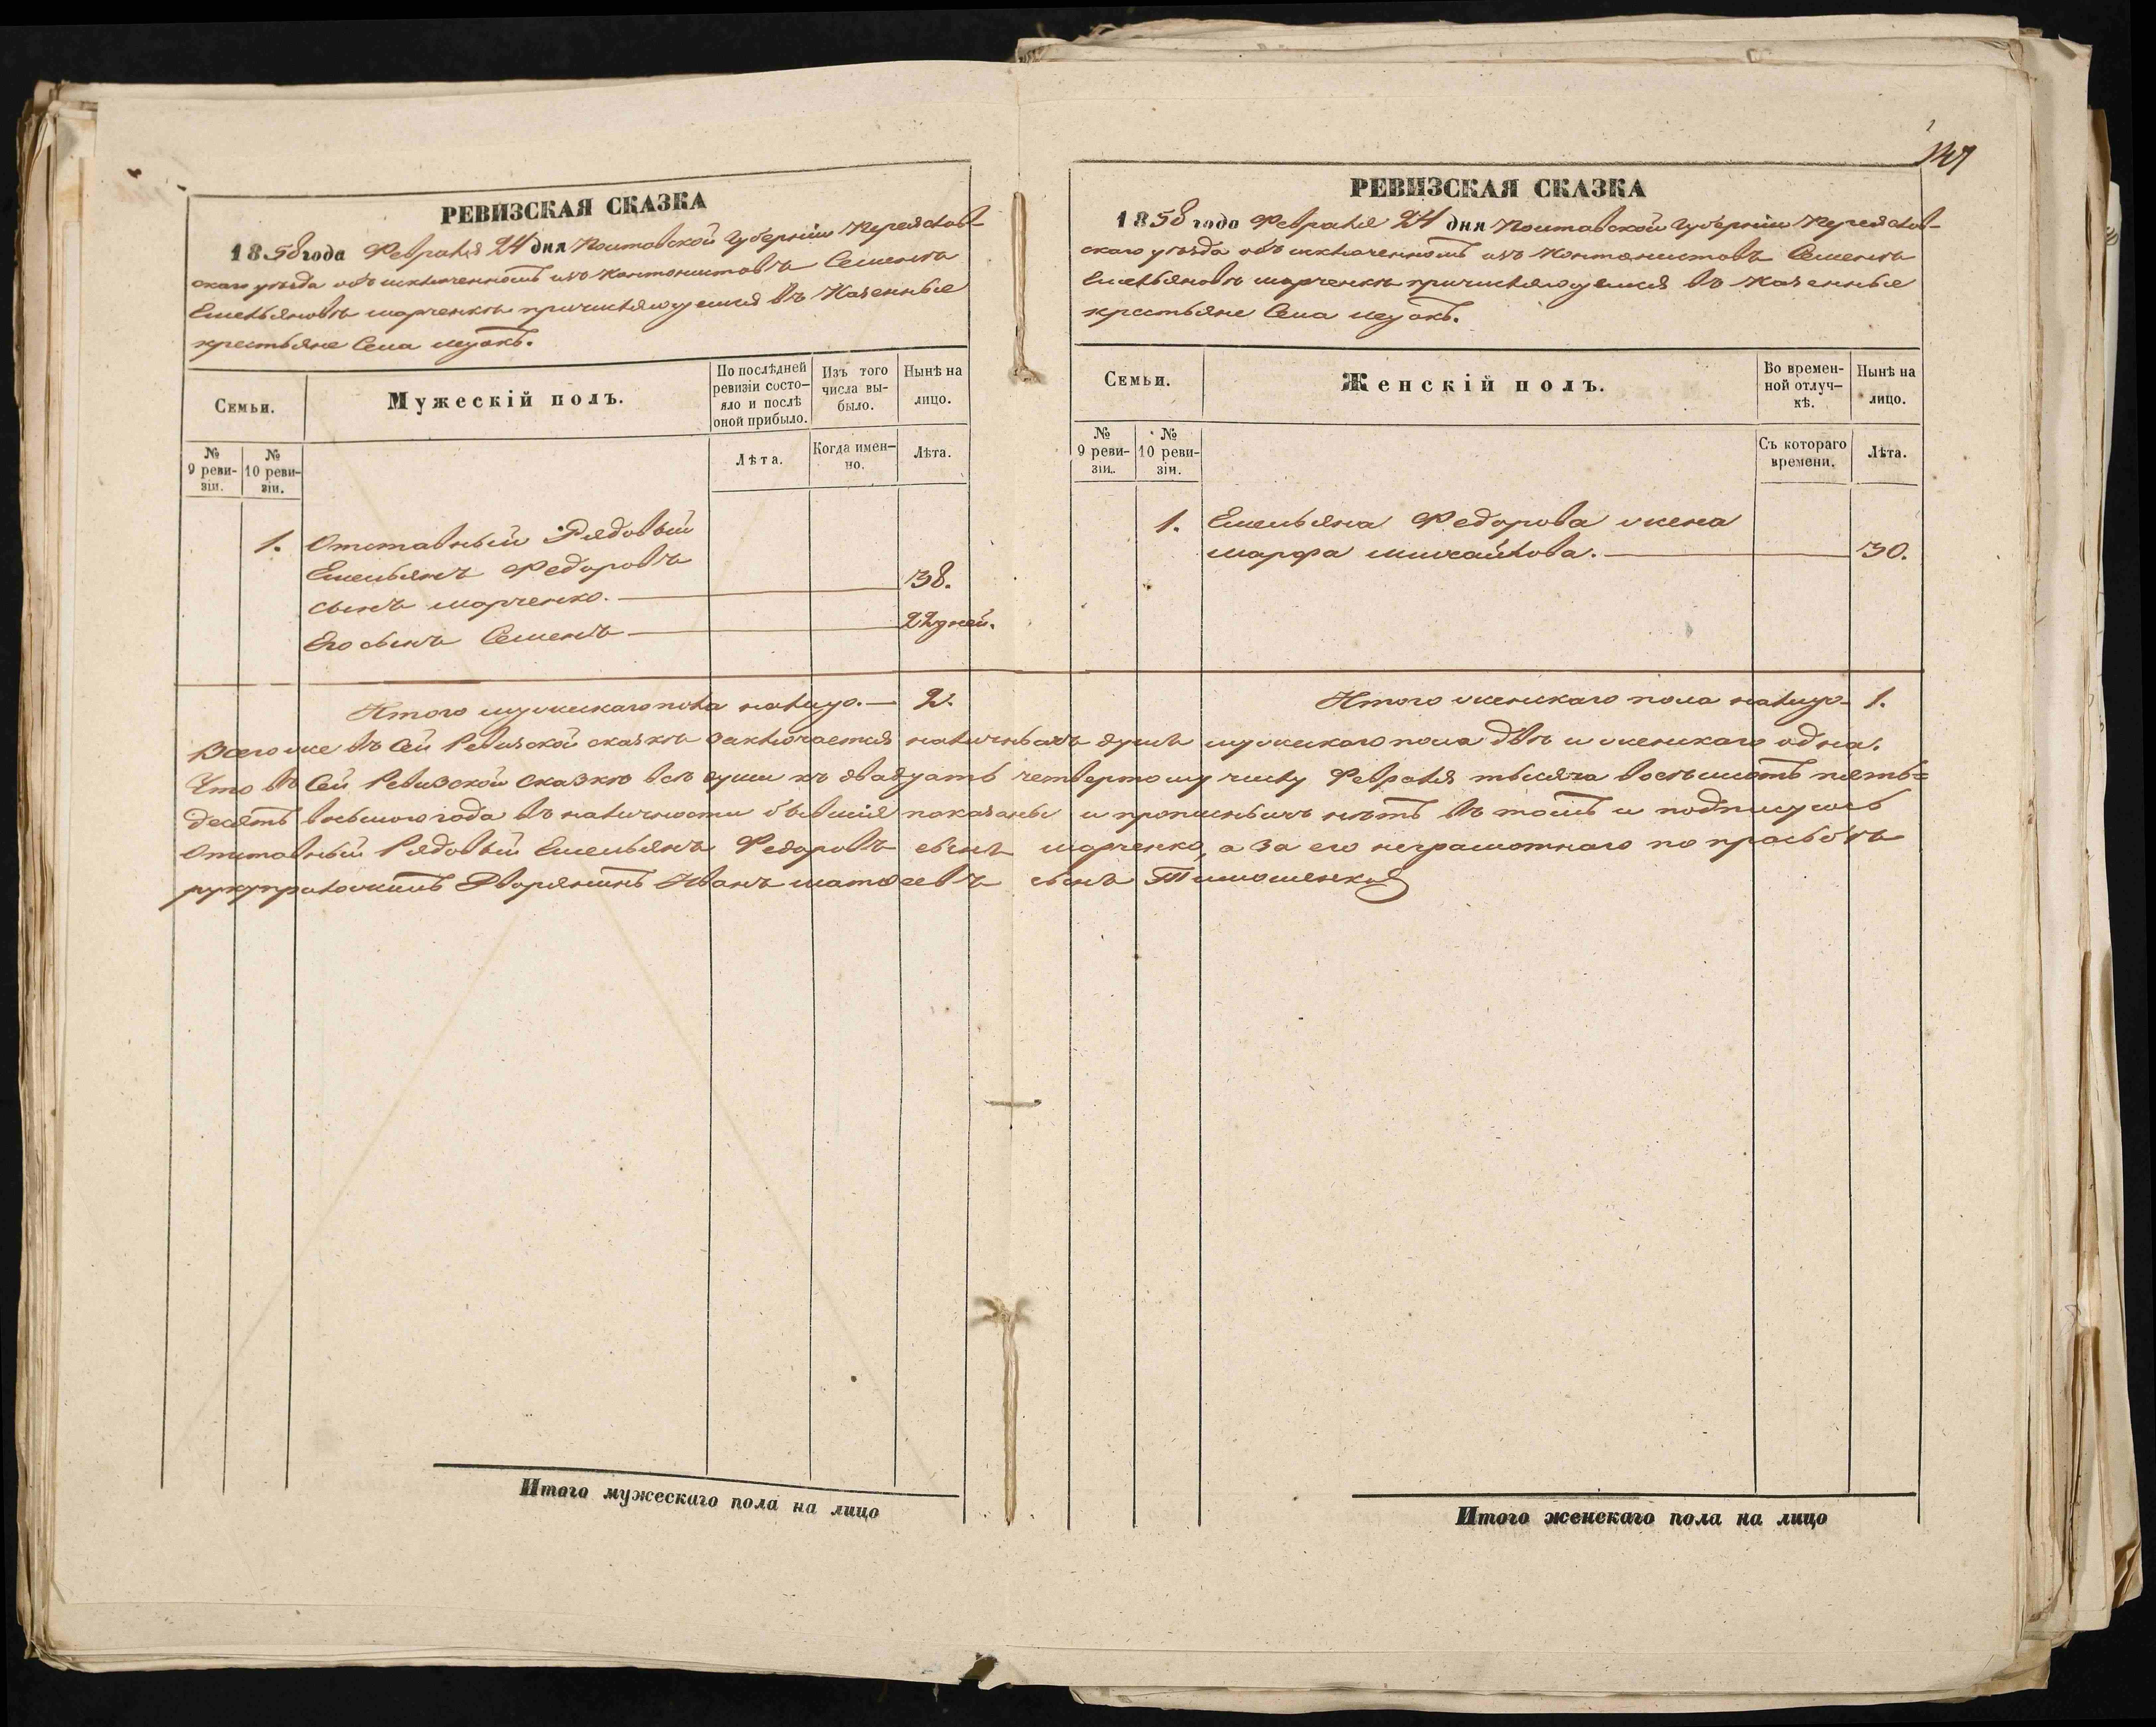 РЕВИЗСКАЯ СКАЗКА
1858 года Февраля 24 дня Полтавской Губерніи Переяслав-
скаго уѣзда объ исключенномъ изъ Кантонистовъ Семенѣ
Емельяновѣ Марченкѣ причисляющемся въ Казенные
крестьяне Села
Семьи.
Мужескій полъ.
По послѣдней ревизіи состо-
яло и послѣ оной прибыло.
Изъ того числа вы-
было.
Нынѣ на лицо.
№ 9 реви-
зіи.
№ 10 реви-
зіи.
Лѣта.
Когда имен-
но.
Лѣта.
1. Отставный Рядовый
Емельянъ Федоровъ
сынъ Марченко. 38.
Его сынъ Семенъ 22 дней.
Итого мужескаго пола налицо. 2.
147
РЕВИЗСКАЯ СКАЗКА
1858 года Февраля 24 дня Полтавской Губерніи Переяслав-
скаго уѣзда объ исключенномъ изъ Кантонистовъ Семенѣ
Емельяновѣ Марченкѣ причисляющемся въ Казенные
крестьяне Села
Семьи.
Женскій полъ.
Во времен-
ной отлуч-
кѣ.
Нынѣ на лицо.
№ 9 реви-
зіи.
№ 10 реви-
зіи.
Съ котораго времени.
Лѣта.
1. Емельяна Федорова жена
Марфа Михайлова. 30.
Итого женскаго пола налицо 1.
Всего же въ Сей Ревизской сказкѣ заключается наличныхъ душъ мужескаго пола двѣ и женскаго одна.
Что въ Сей Ревизской Сказкѣ всѣ души къ двадцать четвертому числу Февраля тысяча восемьсотъ пять=
десятъ восьмого года въ наличности бывшія показаны и прописныхъ нѣтъ въ томъ и подпишусь
Отставный Рядовый Емельянъ Федоровъ сынъ Марченко, а за его неграмотнаго по прозьбѣ
Дворянинъ Иванъ Матвеевъ сынъ Тимошенко
Итого мужескаго пола на лицо
Итого женскаго пола на лицо